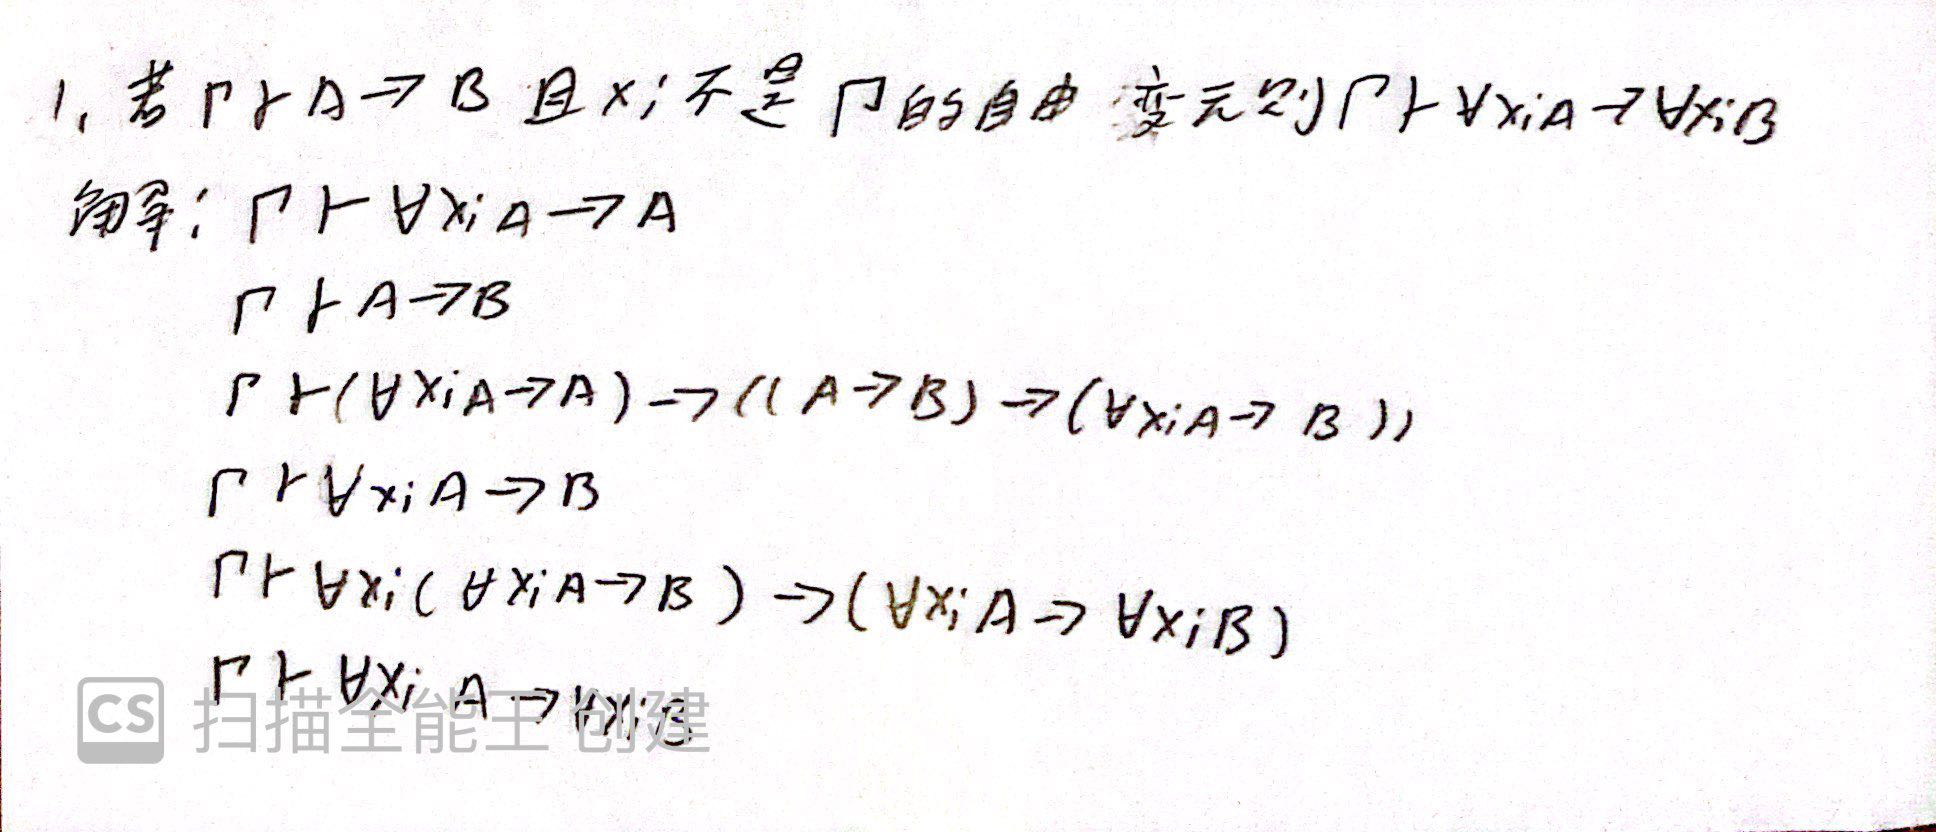 1, 若Γ⊢A→B 且xi不是Γ的自由变元则Γ⊢∀xiA→∀xiB
解: Γ⊢∀xiA→A
Γ⊢A→B
Γ⊢(∀xiA→A)→((A→B)→(∀xiA→B))
Γ⊢∀xiA→B
Γ⊢∀xi(∀xiA→B)→(∀xiA→∀xiB)
Γ⊢∀xiA→∀xiB
CS 扫描全能王 创建